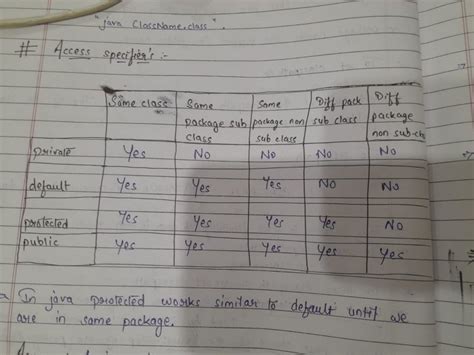 "java ClassName.class".
# Access specifier's :-
Same class | Same package sub class | Same package non sub class | Diff pack sub class | Diff package non sub-cl
private Yes No No No No
default Yes Yes Yes No No
protected Yes Yes Yes Yes No
public Yes Yes Yes Yes Yes
In java protected works similar to default until we
are in same package.